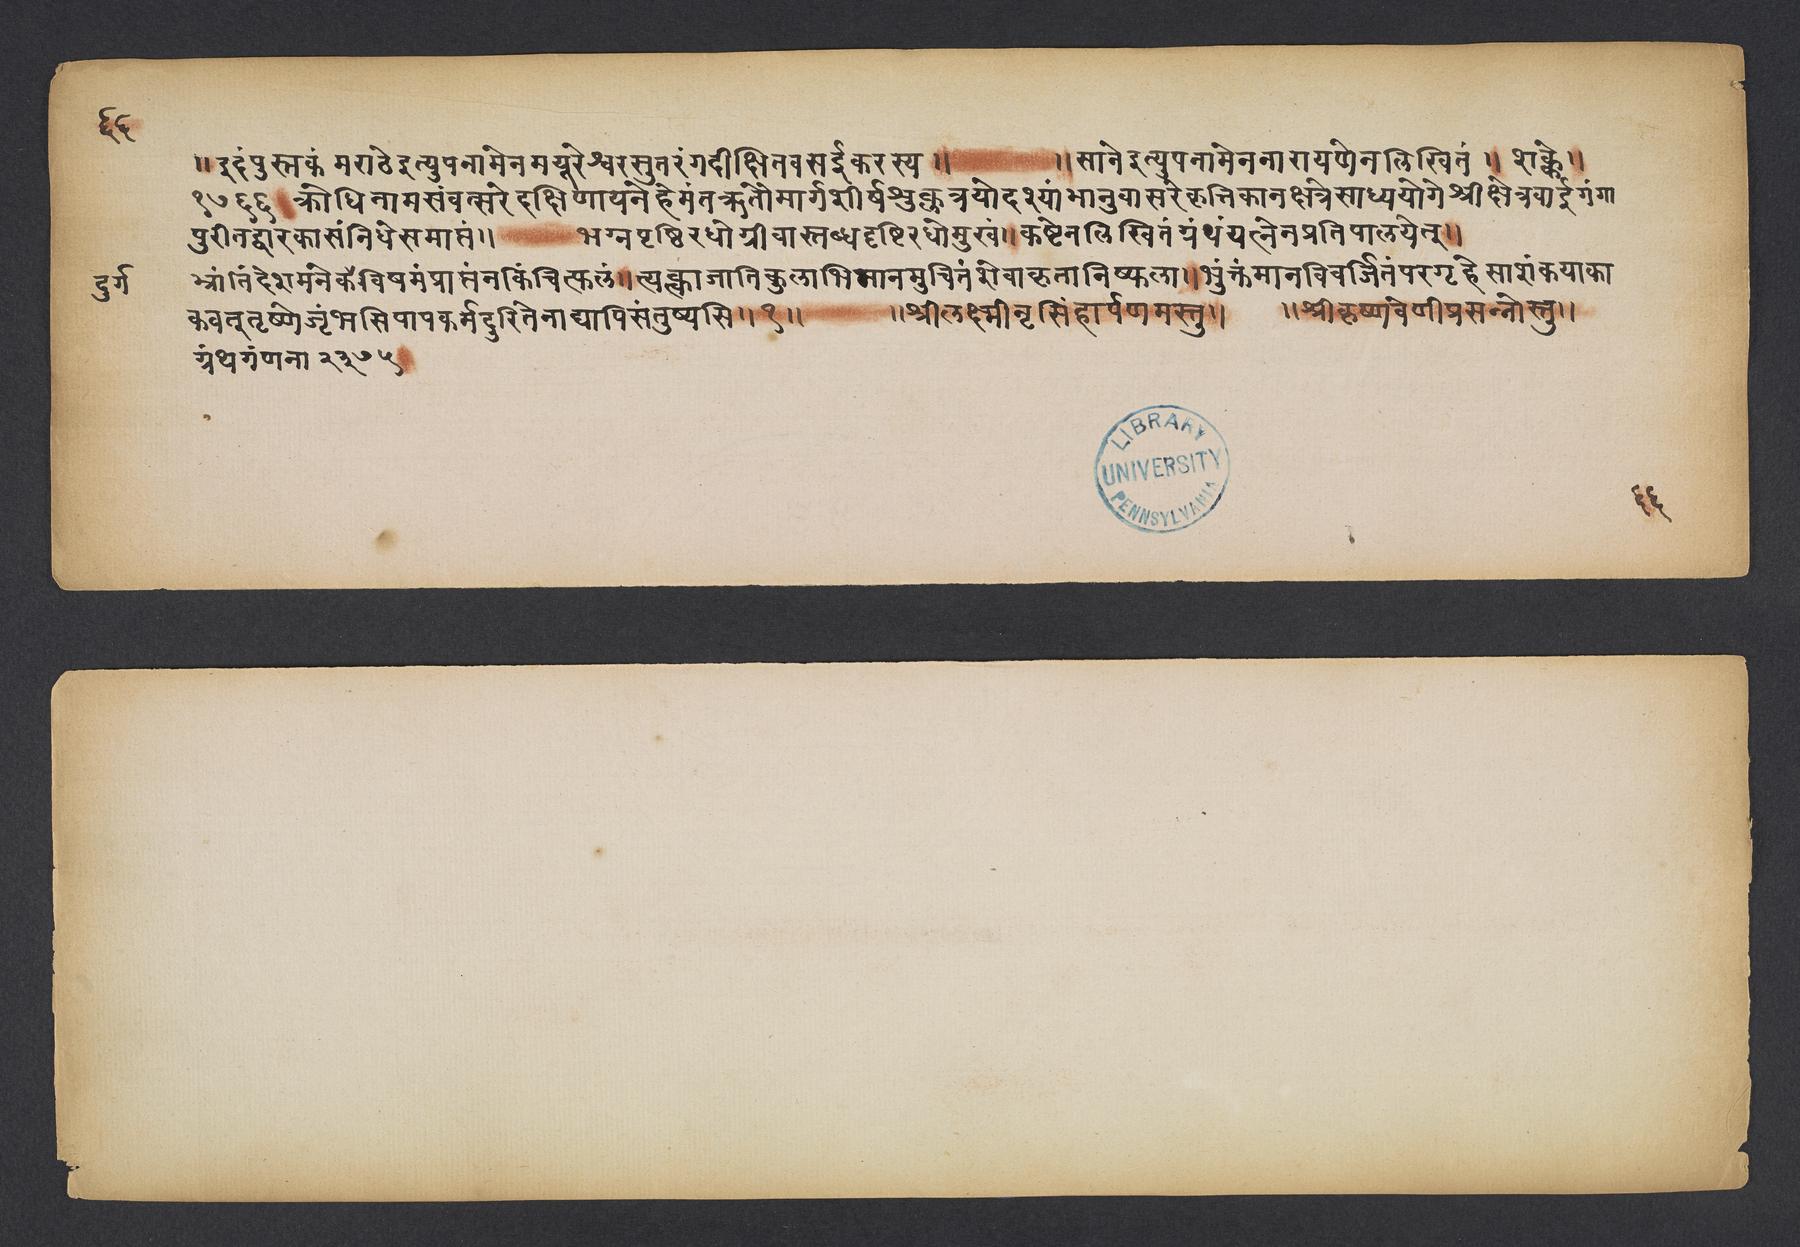 ६६
॥इदंपुस्तकं मराठेइत्युपनामेनमयूरेश्वरसुतरंगदीक्षितवसईकरस्य॥ ॥सानेइत्युपनामेननारायणेनलिखितं॥ शके॥
१७६६ क्रोधिनामसंवत्सरेदक्षिणायनेहेमंतऋतौमार्गशीर्षशुक्लत्रयोदश्यांभानुवासरेकृत्तिकानक्षत्रेसाध्ययोगेश्रीक्षेत्रवाईगंगा
पुरीतद्वारकासंनिधेसमाप्तं॥ भग्नपृष्ठिरधोग्रीवास्तब्धदृष्टिरधोमुखं॥कष्टेनलिखितंग्रंथंयत्नेनप्रतिपालयेत्॥
दुर्ग
भ्रांतंदेशमनेकविषमंप्राप्तंनकिंचित्फलं॥त्यक्त्वाजातिकुलाभिमानमुचितंसेवाकृतानिष्फला॥भुक्तंमानविवर्जितंपरगृहेसाशंकयाका
कवत्तृष्णेजृंभसिपापकर्मदुरितेनाद्यापिसंतुष्यसि॥१॥ ॥श्रीलक्ष्मीनृसिंहार्पणमस्तु॥ ॥श्रीकृष्णावेणीप्रसन्नोस्तु॥
ग्रंथगंणना २२७५
LIBRARY
UNIVERSITY
PENNSYLVANIA
६६